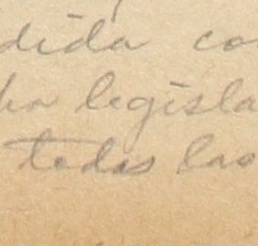 dida co
ha legisla
todas las